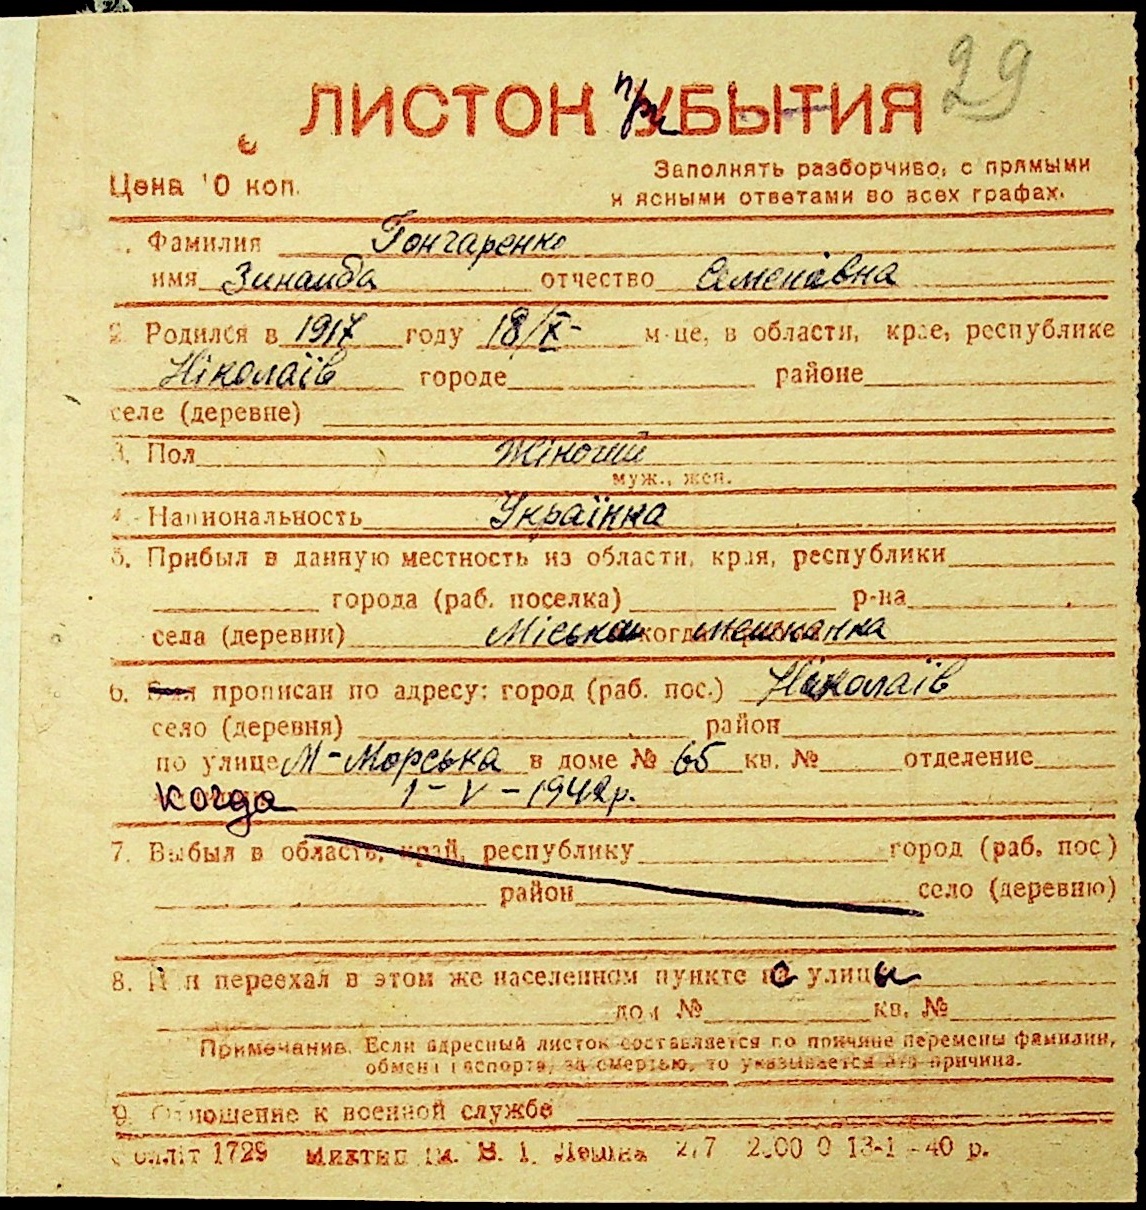 29
ЛИСТОК при УБЫТИЯ
Цена 10 коп.
Заполнять разборчиво, с прямыми
и ясными ответами во всех графах.
1. Фамилия Гончаренко
имя Зинаиба отчество Семенівна
2. Родился в 1917 году 18/X- м-це, в области, крае, республике
Ніколаїв городе районе
селе (деревне)
3. Пол Жіночий
муж., жен.
4. Национальность Українка
5. Прибыл в данную местность из области, края, республики
города (раб. поселка) р-на
села (деревни) Міська когда мешканка
6. прописан по адресу: город (раб. пос.) Ніколаїв
село (деревня) район
по улице М-Морська в доме № 65 кв. № отделение
когда 1-V-1942р.
7. Выбыл в область, край, республику город (раб. пос)
район село (деревню)
8. И и переехал в этом же населенном пункте с улицы
дом № кв. №
Примечание. Если адресный листок составляется по причине перемены фамилии,
обмена паспорта, за смертью, то указывается эта причина.
9. Отношение к военной службе
Обліт 1729 Миктип ім. В. І. Леніна 2000 0 13-1-40 р.